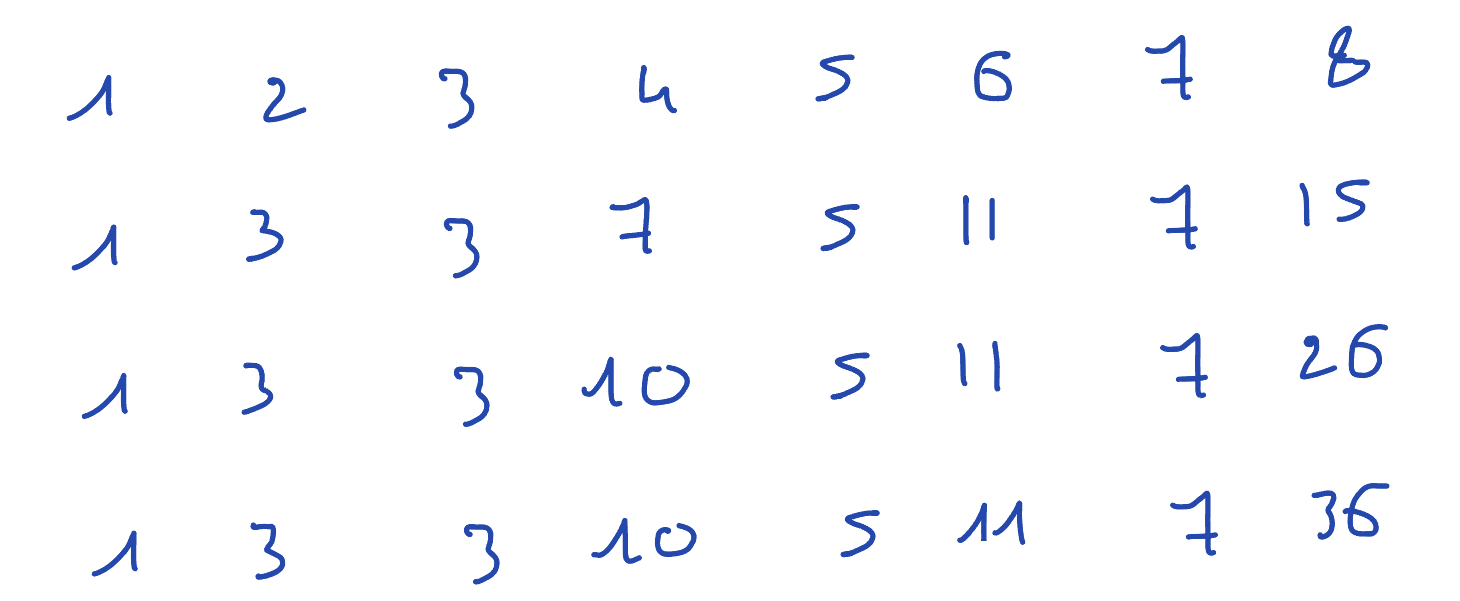 1 2 3 4 5 6 7 8
1 3 3 7 5 11 7 15
1 3 3 10 5 11 7 26
1 3 3 10 5 11 7 36